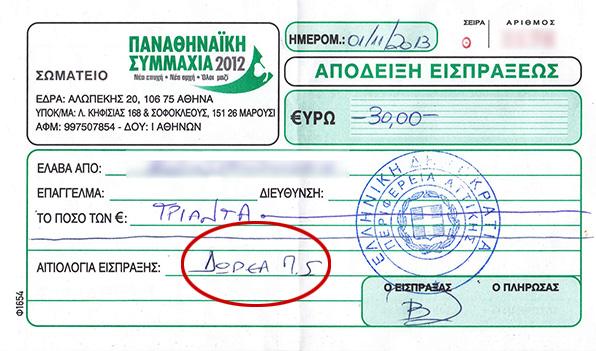 ΠΑΝΑΘΗΝΑΪΚΗ
ΣΥΜΜΑΧΙΑ 2012
Νέα εποχή • Νέα αρχή • Όλοι μαζί
ΣΩΜΑΤΕΙΟ
ΕΔΡΑ: ΑΛΩΠΕΚΗΣ 20, 106 75 ΑΘΗΝΑ
ΥΠΟΚ/ΜΑ: Λ. ΚΗΦΙΣΙΑΣ 168 & ΣΟΦΟΚΛΕΟΥΣ, 151 26 ΜΑΡΟΥΣΙ
ΑΦΜ: 997507854 - ΔΟΥ: Ι ΑΘΗΝΩΝ
ΗΜΕΡΟΜ.: 01/11/2013
ΣΕΙΡΑ ΑΡΙΘΜΟΣ
ΑΠΟΔΕΙΞΗ ΕΙΣΠΡΑΞΕΩΣ
ΕΥΡΩ -30,00-
ΕΛΑΒΑ ΑΠΟ:
ΕΠΑΓΓΕΛΜΑ: ΔΙΕΥΘΥΝΣΗ:
ΤΟ ΠΟΣΟ ΤΩΝ €: ΤΡΙΑΝΤΑ
ΑΙΤΙΟΛΟΓΙΑ ΕΙΣΠΡΑΞΗΣ: ΔΩΡΕΑ Π.Σ
ΕΛΛΗΝΙΚΗ ΔΗΜΟΚΡΑΤΙΑ
ΠΕΡΙΦΕΡΕΙΑ ΑΤΤΙΚΗΣ
Ο ΕΙΣΠΡΑΞΑΣ Ο ΠΛΗΡΩΣΑΣ
Φ1654